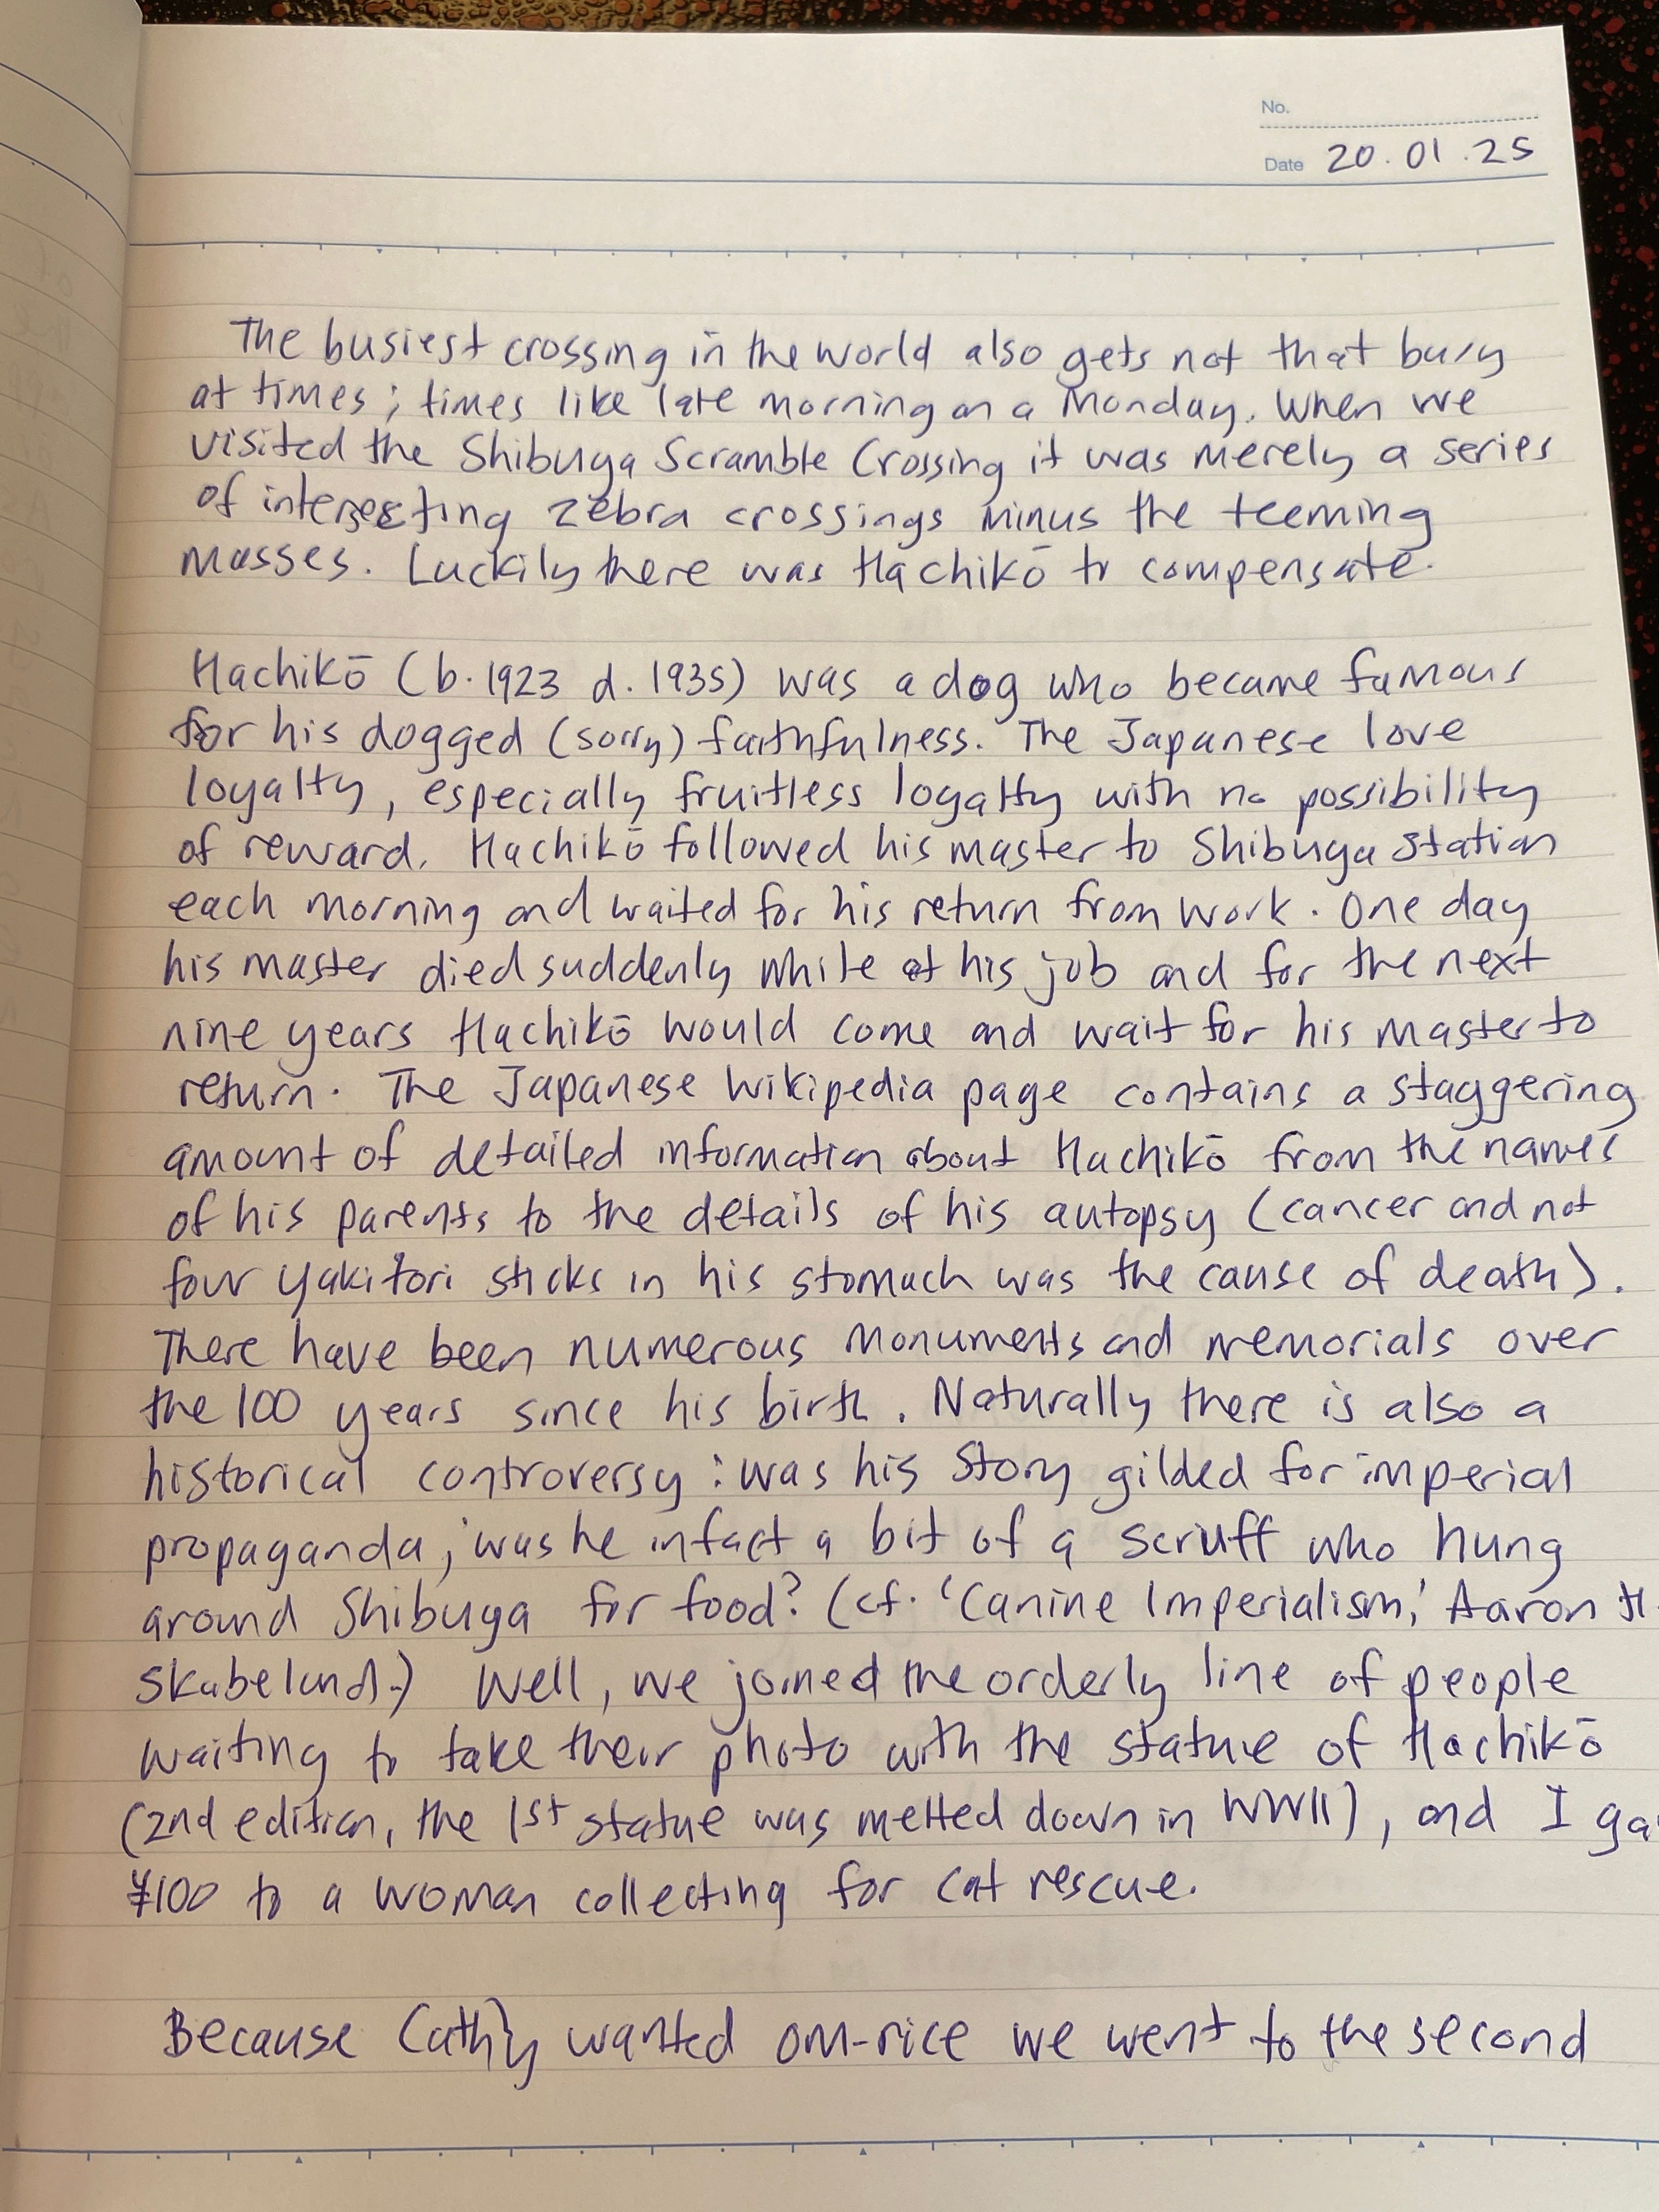 No.
Date 20.01.25
The busiest crossing in the world also gets not that busy
at times; times like late morning on a Monday. When we
visited the Shibuya Scramble Crossing it was merely a series
of intersecting zebra crossings minus the teeming
masses. Luckily there was Hachikō to compensate.
Hachikō (b.1923 d.1935) was a dog who became famous
for his dogged (sorry) faithfulness. The Japanese love
loyalty, especially fruitless loyalty with no possibility
of reward. Hachikō followed his master to Shibuya Station
each morning and waited for his return from work. One day
his master died suddenly while at his job and for the next
nine years Hachikō would come and wait for his master to
return. The Japanese Wikipedia page contains a staggering
amount of detailed information about Hachikō from the names
of his parents to the details of his autopsy (cancer and not
four yakitori sticks in his stomach was the cause of death).
There have been numerous monuments and memorials over
the 100 years since his birth. Naturally there is also a
historical controversy: was his story gilded for imperial
propaganda; was he in fact a bit of a scruff who hung
around Shibuya for food? (cf. 'Canine Imperialism,' Aaron H.
Skabelund.) Well, we joined the orderly line of people
waiting to take their photo with the statue of Hachikō
(2nd edition, the 1st statue was melted down in WWII), and I ga
¥100 to a woman collecting for cat rescue.
Because Cathy wanted om-rice we went to the second